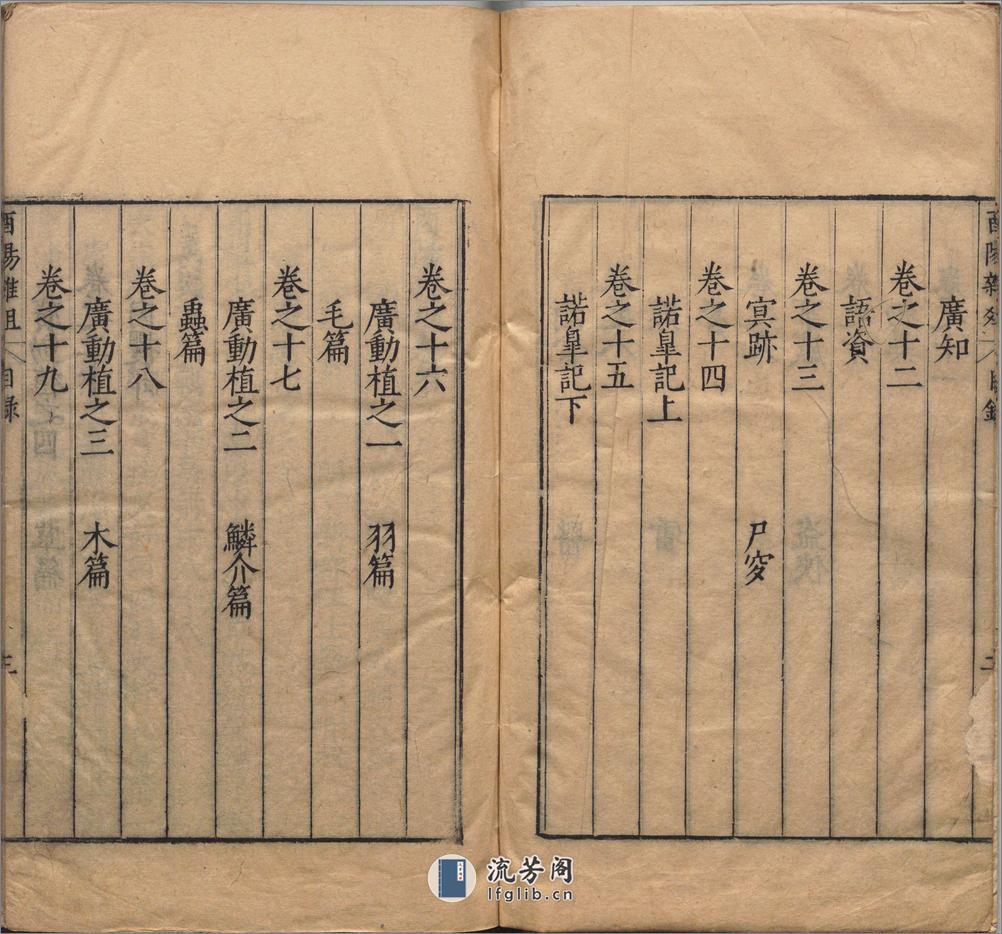 廣知
卷之十二
語資
卷之十三
㝠跡 尸穸
卷之十四
諾臯記上
卷之十五
諾臯記下
卷之十六
廣動植之一 羽篇
毛篇
卷之十七
廣動植之二 鱗介篇
蟲篇
卷之十八
廣動植之三 木篇
卷之十九
酉陽雜俎 目録 三
流芳阁
lfglib.cn